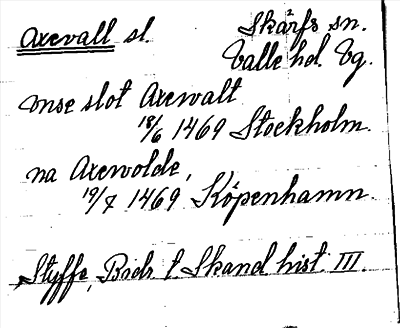 Axevall sl. Skärfs sn.
Valle hd. Vg.
mse slot Axewalt
18/6 1469 Stockholm.
na Axewolde,
19/7 1469 Köpenhamn.
Styffe, Bidr. t. Skand hist. III.